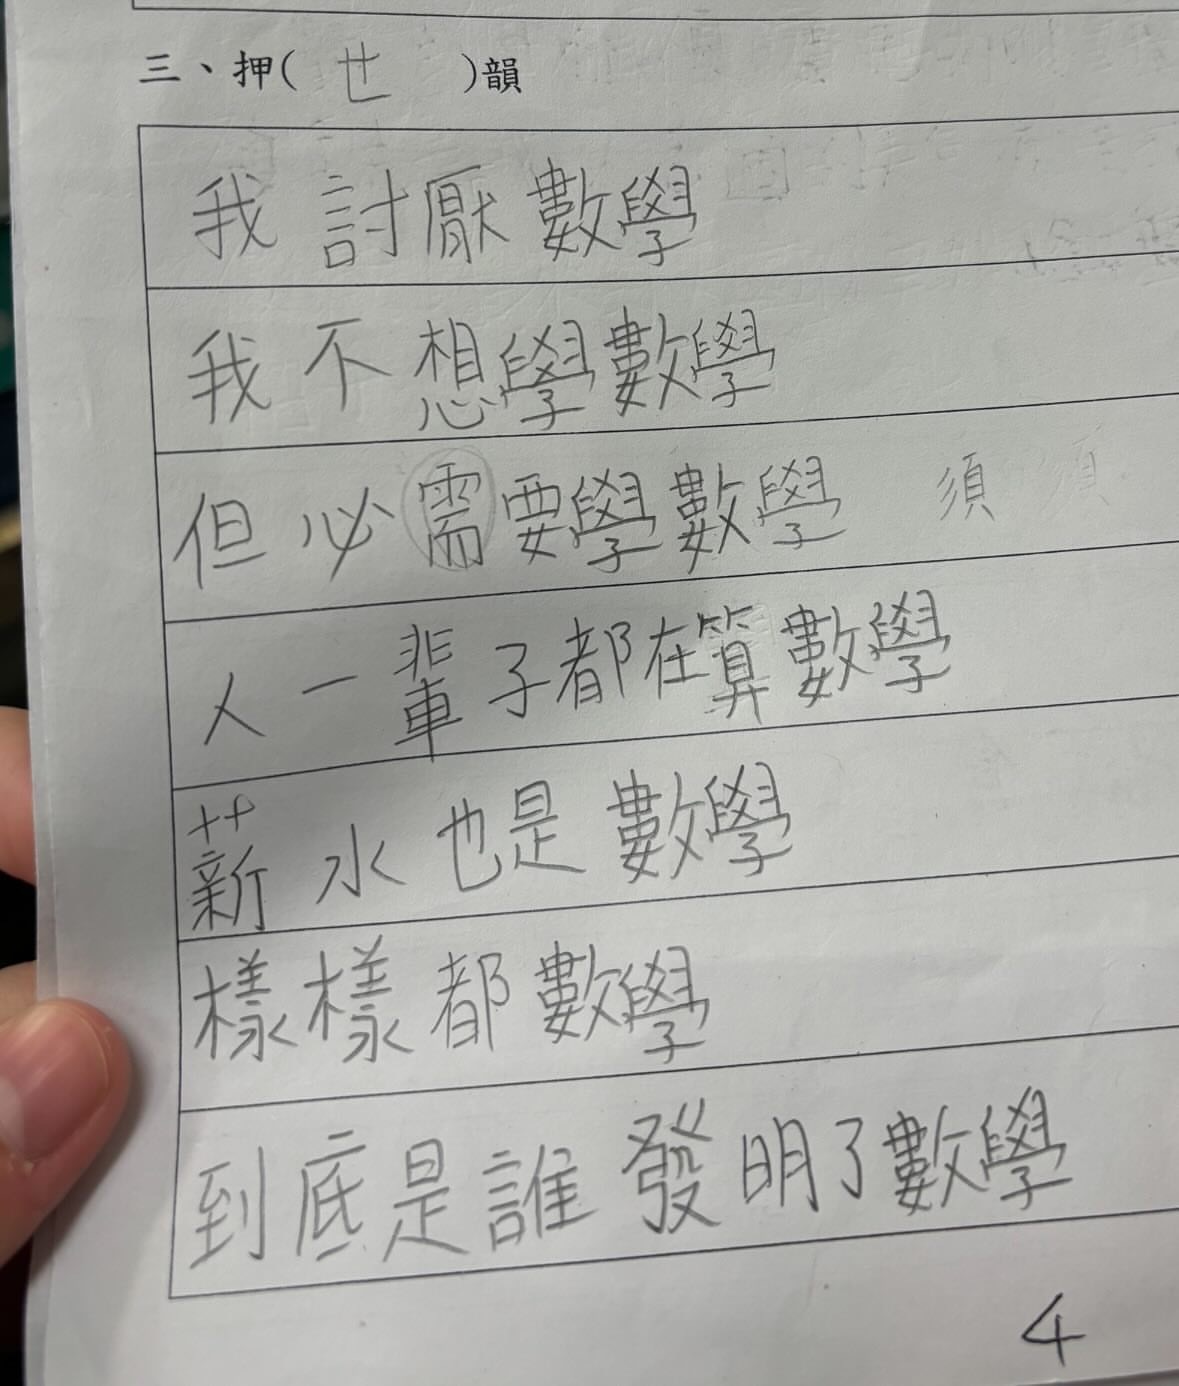 三、押(ㄝ)韻
我討厭數學
我不想學數學
但必需要學數學 須 須
人一輩子都在算數學
薪水也是數學
樣樣都數學
到底是誰發明了數學
4